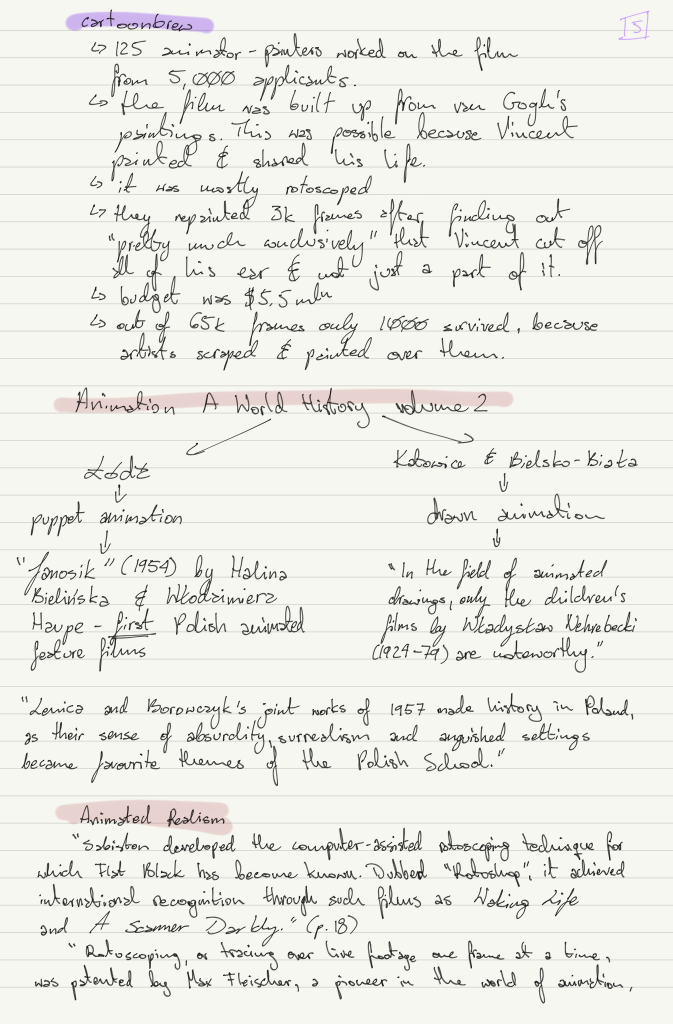 cartoonbrew
15
↳ 125 animator-painters worked on the film
from 5,000 applicants.
↳ the film was built up from van Gogh's
paintings. This was possible because Vincent
painted & shared his life.
↳ it was mostly rotoscoped
↳ they repainted 3k frames after finding out
"pretty much conclusively" that Vincent cut off
all of his ear & not just a part of it.
↳ budget was $5,5 mln
↳ out of 65k frames only 1000 survived, because
artists scraped & painted over them.
Animation A World History volume 2
Łódź
Katowice & Bielsko-Biała
↓
↓
puppet animation
drawn animation
↓
↓
"Janosik" (1954) by Halina
Bielińska & Włodzimierz
Haupe - first Polish animated
feature films
"In the field of animated
drawings, only the children's
films by Władysław Nehrebecki
(1924-79) are noteworthy."
"Lenica and Borowczyk's joint works of 1957 made history in Poland,
as their sense of absurdity, surrealism and anguished settings
became favourite themes of the Polish School."
Animated Realism
"Sabiston developed the computer-assisted rotoscoping technique for
which Flat Black has become known. Dubbed "Rotoshop", it achieved
international recognition through such films as Waking Life
and A Scanner Darkly." (p.18)
"Rotoscoping, or tracing over live footage one frame at a time,
was patented by Max Fleischer, a pioneer in the world of animation,